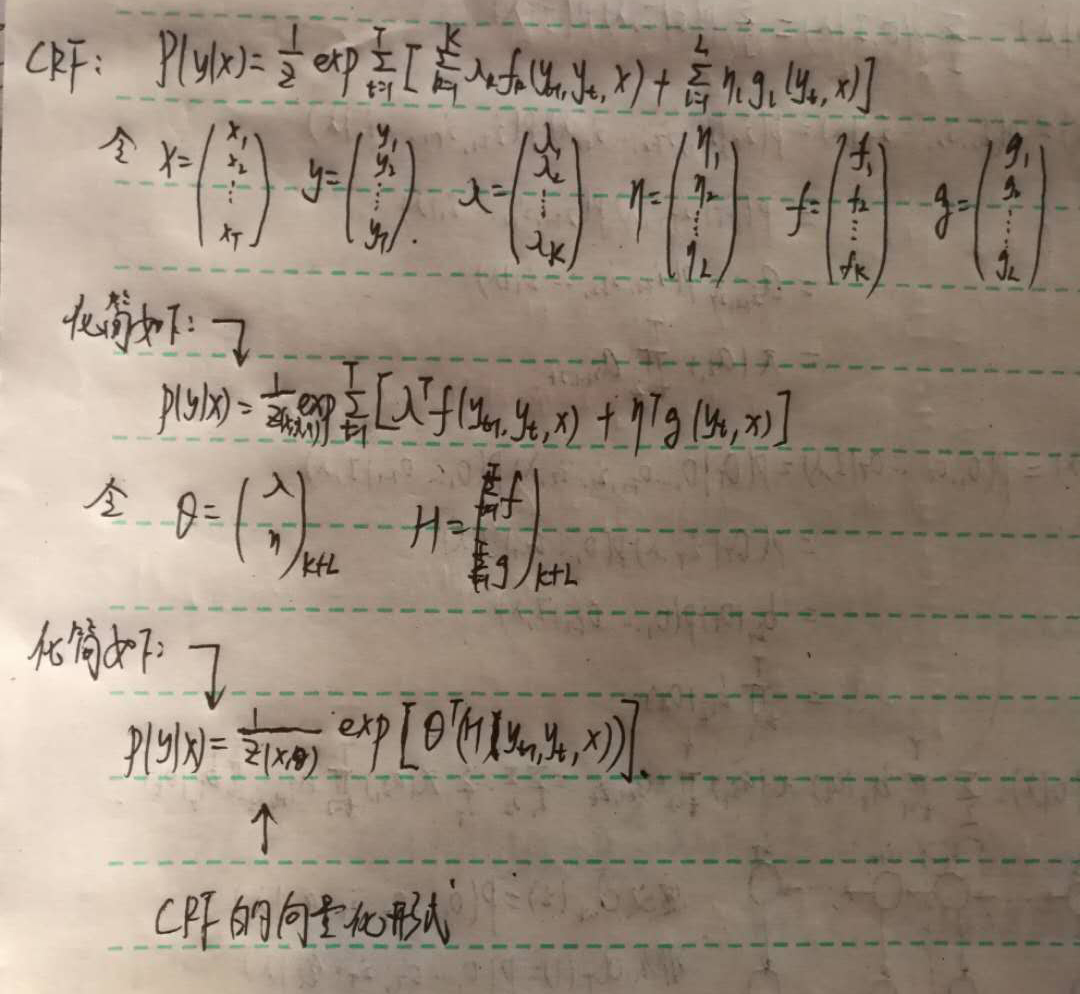 CRF: P(y|x) = 1/Z exp ∑_{t=1}^{T} [ ∑_{k=1}^{K} λ_k f_k(y_{t-1}, y_t, x) + ∑_{l=1}^{L} η_l g_l(y_t, x) ]
令 x = (x_1 x_2 ⋮ x_T) y = (y_1 y_2 ⋮ y_T). λ = (λ_1 λ_2 ⋮ λ_K) η = (η_1 η_2 ⋮ η_L) f = (f_1 f_2 ⋮ f_K) g = (g_1 g_2 ⋮ g_L)
化简如下: ↓
P(y|x) = 1/Z(x,λ,η) exp ∑_{t=1}^{T} [ λ^T f(y_{t-1}, y_t, x) + η^T g(y_t, x) ]
令 θ = (λ η)_{K+L} H = (∑_{t=1}^{T} f ∑_{t=1}^{T} g)_{K+L}
化简如下: ↓
P(y|x) = 1/Z(x,θ) exp [ θ^T (H(y_{t-1}, y_t, x)) ].
↑
CRF的向量化形式